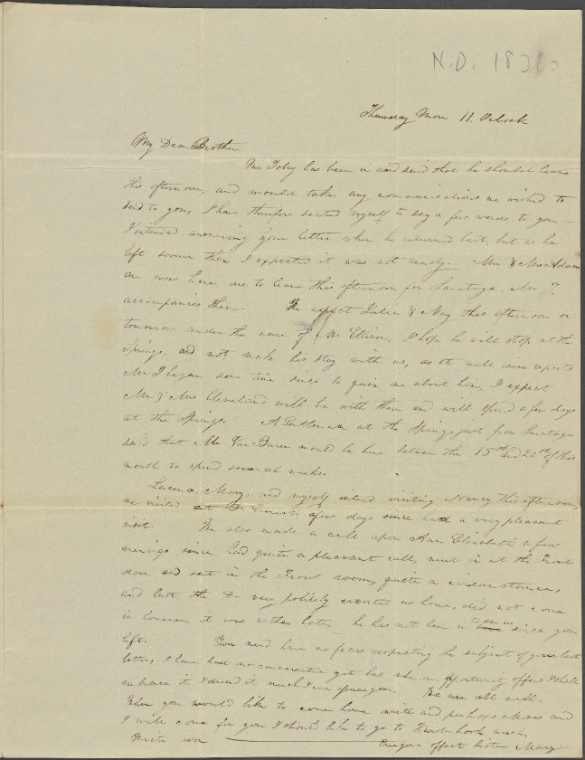 N.D. 183
Thursday Morn 11. Oclock
My Dear Brother
Mr Toby has been in and said that he should leave
this afternoon, and would take any communications we wished to
send to you, I have therefore seated myself to say a few words to you
I intended answering your letter when he returned last, but as he
left sooner than I expected it was not ready. Mr & Mrs Adams
are now here, are to leave this afternoon for Saratoga, Mr T.
accompanies them. We expect Julia & May this afternoon or
tomorrow under the care of Mr I hope he will stop at the
Springs, and not make his stay with us, as it will cause reports
Mr began some time since to quiz me about him, I expect
Mr & Mrs Cleveland will be with them and will spend a few days
at the Springs. A Gentleman at the Springs just from Saratoga
said that Mr Van Buren would be here between the 15th and 20th of this
month to spend several weeks.
Mary, and myself intend visiting Nancy this afternoon,
we visited at a few days since had a very pleasant
visit. We also made a call upon Ann Elizabeth a few
evenings since, had quite a pleasant call, went in at the Front
door and sat in the Front room, quite a circumstance,
and but the Dr very politely escorted us home, did not come
in however it was rather late, he has not been in to see us since you
left. You need have no fears respecting the subject of your last
letter, I have had no conversation yet but when an opportunity offers I shall
embrace it. We are all well.
When you would like to come home write and perhaps and
I will come for you I should like to go to Kinderhook much.
Write soon Your affect sister Mary